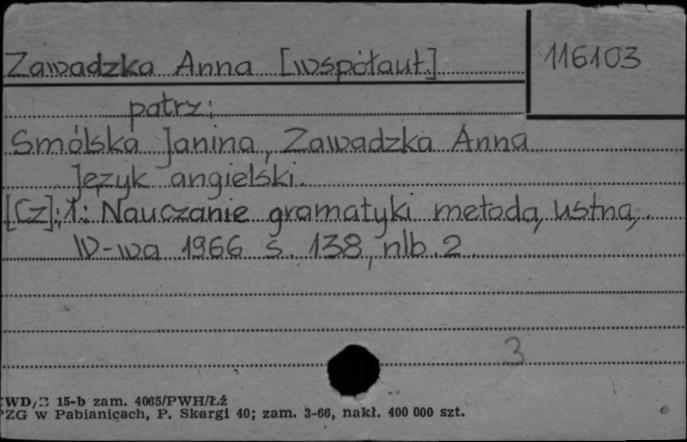 Zawadzka Anna [współaut.]
116103
patrz:
Smólska Janina, Zawadzka Anna
Język angielski.
[Cz]. 1: Nauczanie gramatyki metodą ustną.
W-wa 1966 s. 138, nlb. 2
3
15-b zam. 4065/PWH/Łź
PZG w Pabianicach, P. Skargi 40; zam. 3-66, nakł. 400 000 szt.